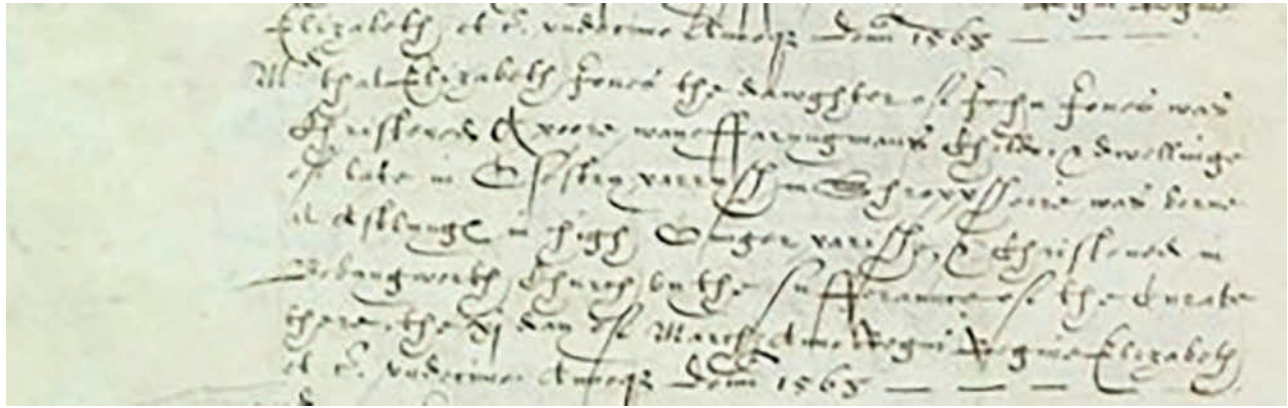 Elizabeth et c. undecimo Annoq3 Dom 1568
Md that Elizabeth Jones the dawghter of John Jones was
Christened A poore wayffaryngmans Childe, & dwellinge
of late in parryssh in Shroppsheire was borne
at in high parissh, & Christened in
Church by the sufferance of the Curate
there, the xj day of March Anno Regni Regine Elizabeth
et c. undecimo Annoq3 Dom 1568